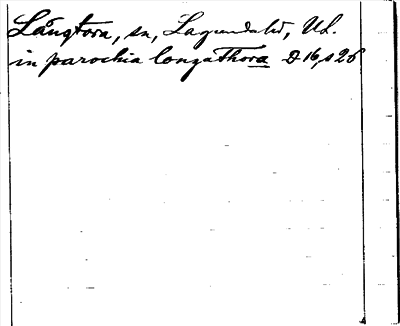 Långtora, sn, Lagundahd, Ul.
in parochia longathora D 16, s 26